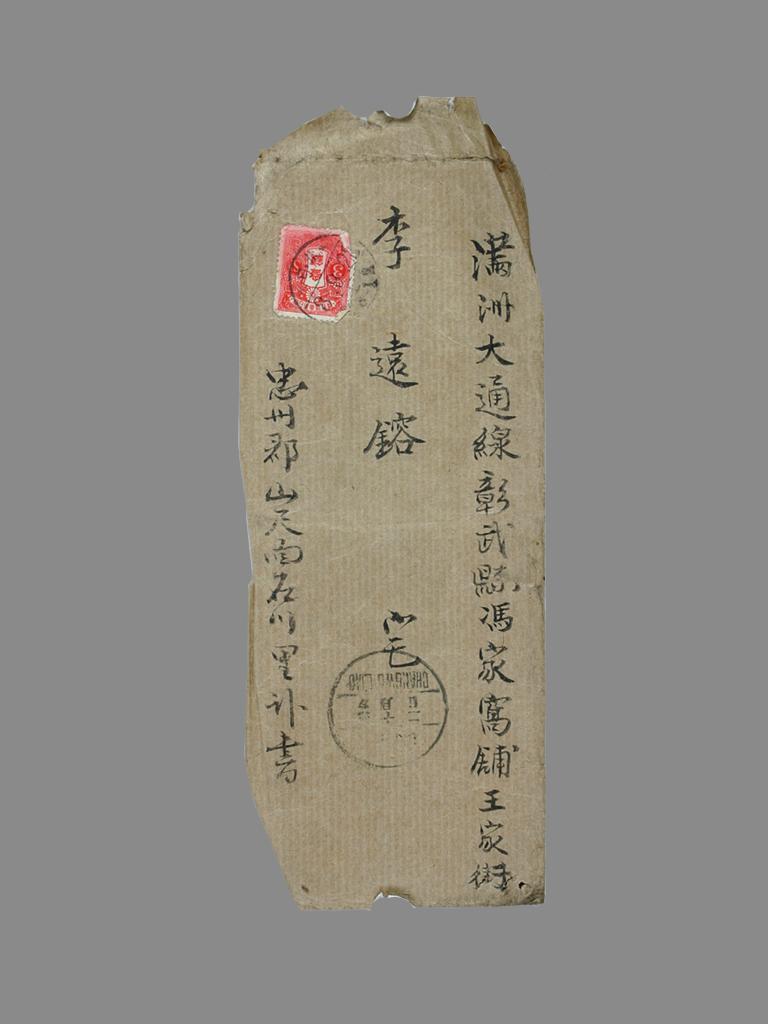 滿洲大通線彰武縣馮家窩舖王家街
李遠鎔
忠州郡山尺面石川里訃書
CHANGWU